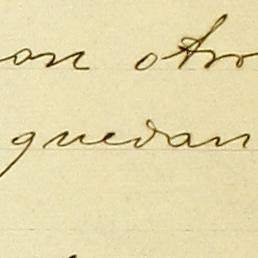 on otro
quedan